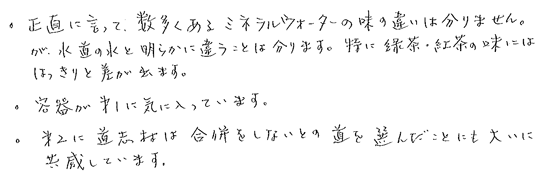 。正直に言って、数多くあるミネラルウォーターの味の違いは分りません。
が、水道の水と明らかに違うことは分ります。特に緑茶・紅茶の味には
はっきりと差が出ます。
。容器が第1に気に入っています。
。第2に道志村は合併をしないとの道を選んだことにも大いに
共感しています。